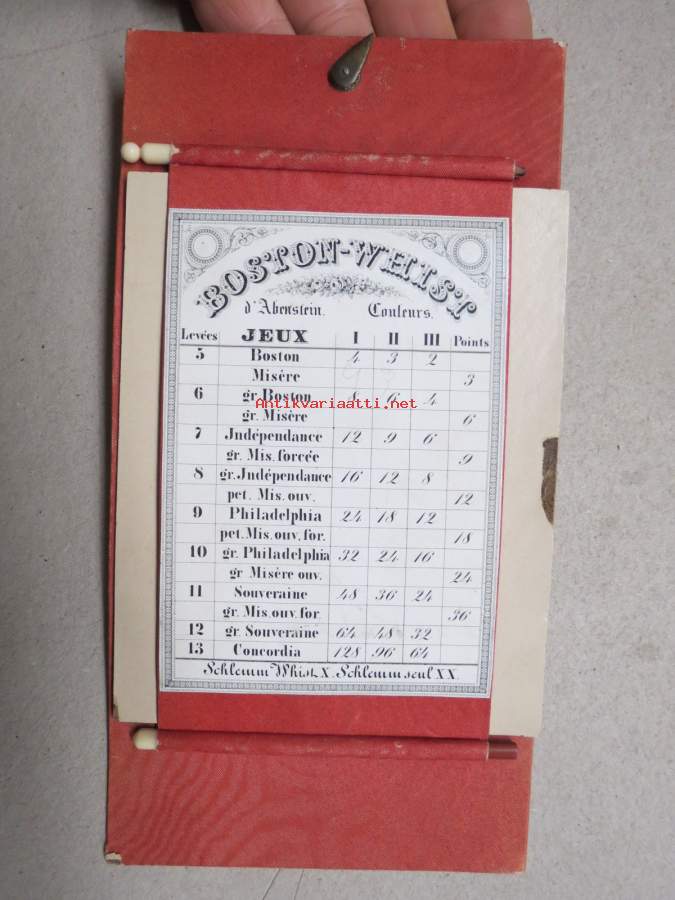 BOSTON-WHIST
d'Abenstein. Couleurs.
Levées JEUX I II III Points
5 Boston 4 3 2
Misére 3
6 gr. Boston 8 6 4
Antikvariaatti.net
gr. Misère 6
7 Jndépendance 12 9 6
gr. Mis. forcée 9
8 gr. Jndépendance 16 12 8
pet. Mis. ouv. 12
9 Philadelphia 24 18 12
pet. Mis. ouv. for. 18
10 gr. Philadelphia 32 24 16
gr Misère ouv. 24
11 Souveraine 48 36 24
gr. Mis. ouv. for 36
12 gr. Souveraine 64 48 32
13 Concordia 128 96 64
Schlemm Whist X. Schlemm seul XX.